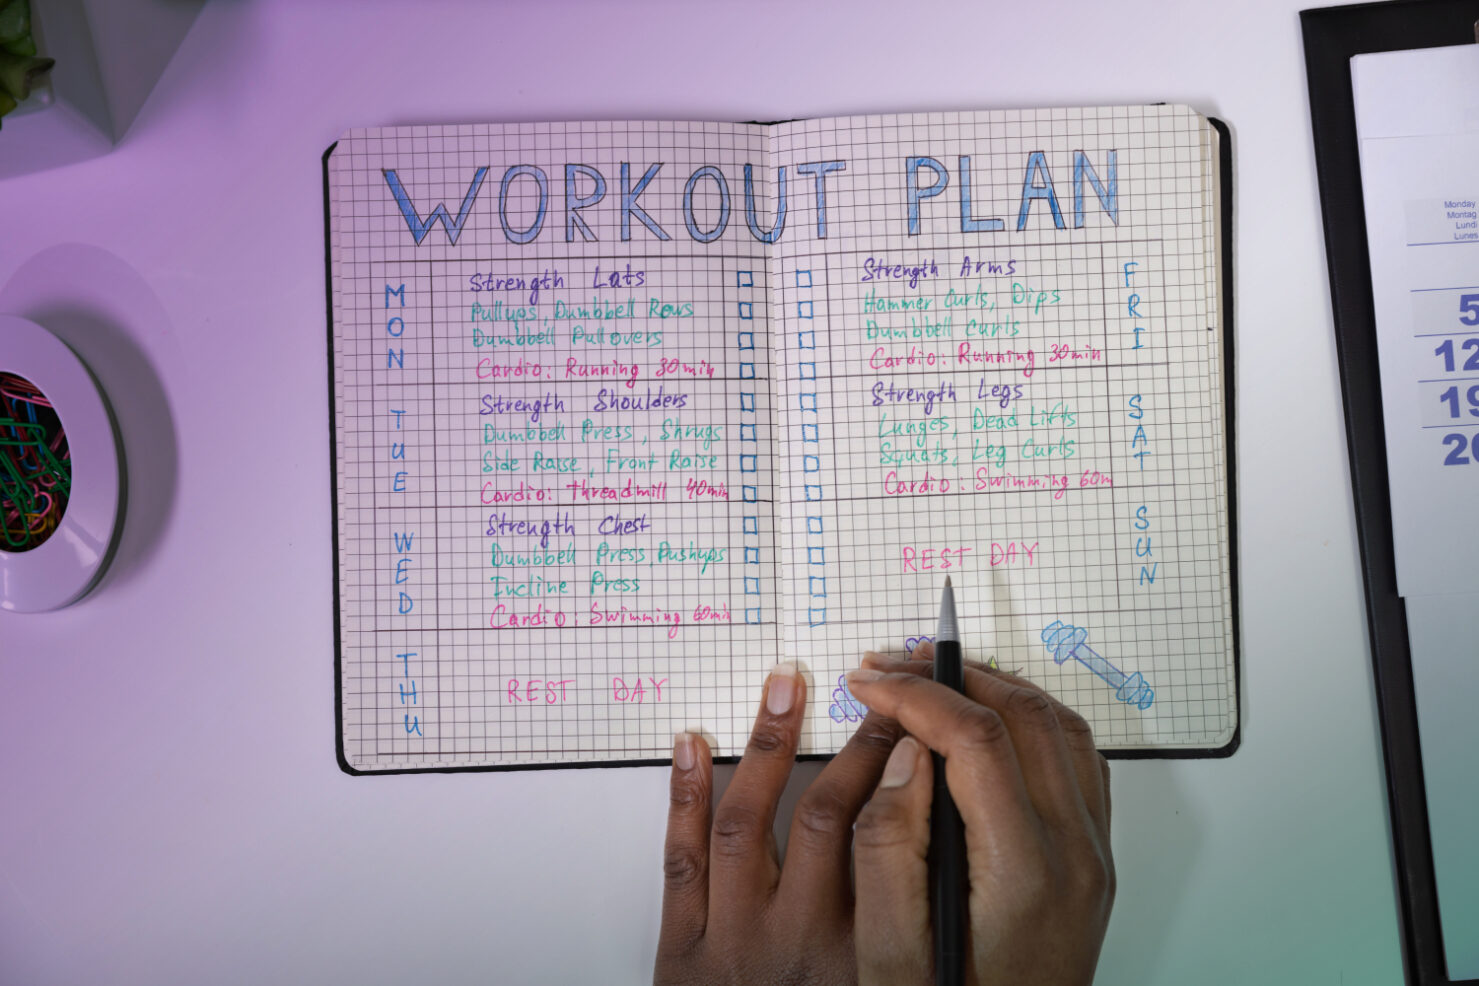 WORKOUT PLAN
MON
Strength Lats
Pullups, Dumbbell Rows
Dumbbell Pullovers
Cardio: Running 30min
TUE
Strength Shoulders
Dumbbell Press, Shrugs
Side Raise, Front Raise
Cardio: Threadmill 40min
WED
Strength Chest
Dumbbell Press, Pushups
Incline Press
Cardio: Swimming 60min
THU
REST DAY
FRI
Strength Arms
Hammer Curls, Dips
Dumbbell Curls
Cardio: Running 30min
SAT
Strength Legs
Lunges, Dead Lifts
Squats, Leg Curls
Cardio: Swimming 60m
SUN
REST DAY
Monday
Montag
Lundi
Lunes
5
12
19